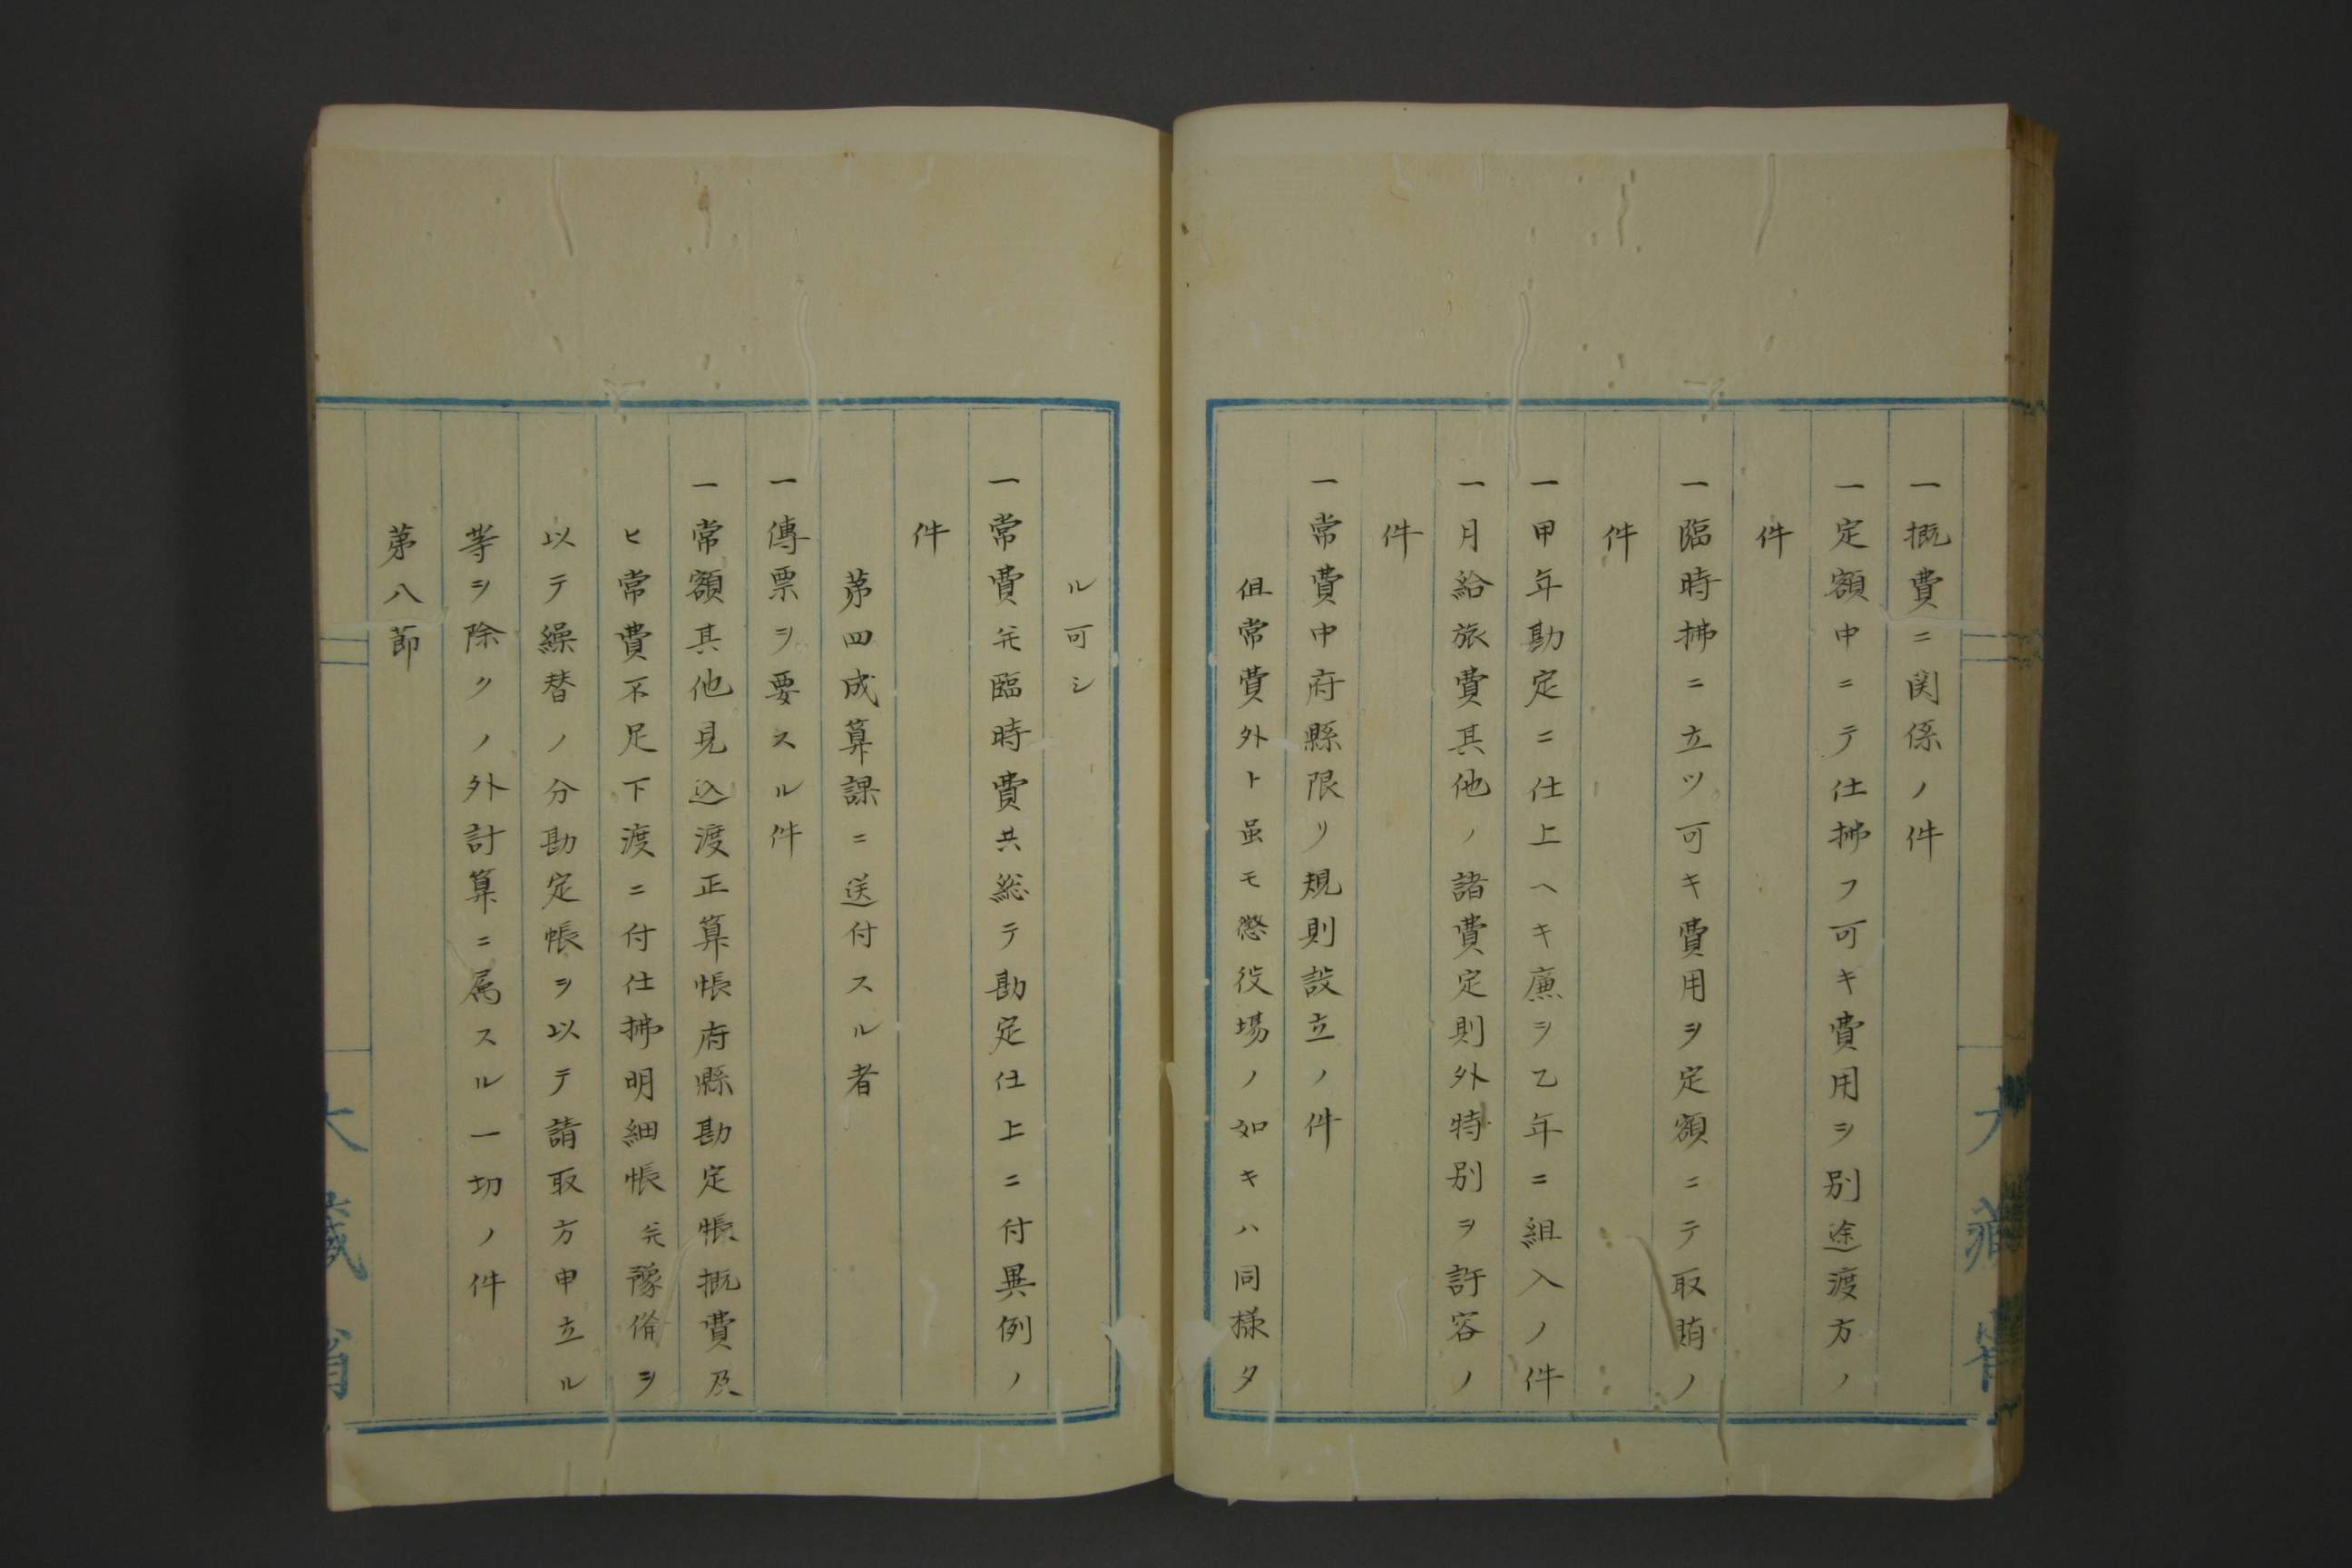 一概費ニ関係ノ件
一定額中ニテ仕拂フ可キ費用ヲ別途渡方ノ
件
一臨時拂ニ立ツ可キ費用ヲ定額ニテ取賄ノ
件
一甲年勘定ニ仕上ヘキ廉ヲ乙年ニ組入ノ件
一月給旅費其他ノ諸費定則外特別ヲ許容ノ
件
一常費中府縣限リ規則設立ノ件
但常費外ト虽モ懲役場ノ如キハ同様タ
ル可シ
一常費幷臨時費共総テ勘定仕上ニ付異例ノ
件
第四成算課ニ送付スル者
一傳票ヲ要スル件
一常額其他見込渡正算帳府縣勘定帳概費及
ヒ常費不足下渡ニ付仕拂明細帳幷豫備ヲ
以テ繰替ノ分勘定帳ヲ以テ請取方申立ル
等ヲ除クノ外計算ニ属スル一切ノ件
第八節
大藏省
大藏省